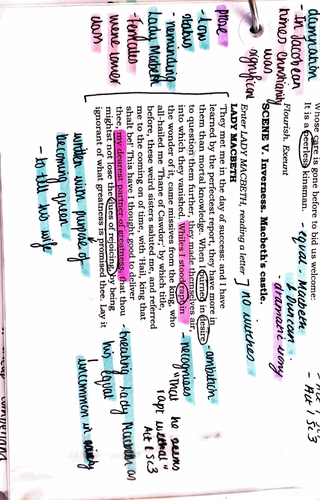 damnation
- In Jacobean
times Christianity
was
significant
Whose care is gone before to bid us welcome:
It is a peerless kinsman.
- equal, Macbeth
& Duncan
- dramatic irony
- Act 1 Sc 3
Flourish. Exeunt
SCENE V. Inverness. Macbeth's castle.
Enter LADY MACBETH, reading a letter
] no witches
LADY MACBETH
'They met me in the day of success: and I have
learned by the perfectest report, they have more in
them than mortal knowledge. When I burned in desire
to question them further, they made themselves air,
into which they vanished. Whiles I stood rapt in
the wonder of it, came missives from the king, who
all-hailed me 'Thane of Cawdor;' by which title,
before, these weird sisters saluted me, and referred
me to the coming on of time, with 'Hail, king that
shalt be!' This have I thought good to deliver
thee, my dearest partner of greatness, that thou
mightst not lose the dues of rejoicing, by being
ignorant of what greatness is promised thee. Lay it
- ambition
- recognises
that he seems
"rapt withal"
Act 1 Sc 3
- treating Lady Macbeth as
his equal
uncommon in society
More
- low
status
- reminding
Lady Macbeth
- females
were lower
class
written with purpose of
becoming queen
- loyal to his wife